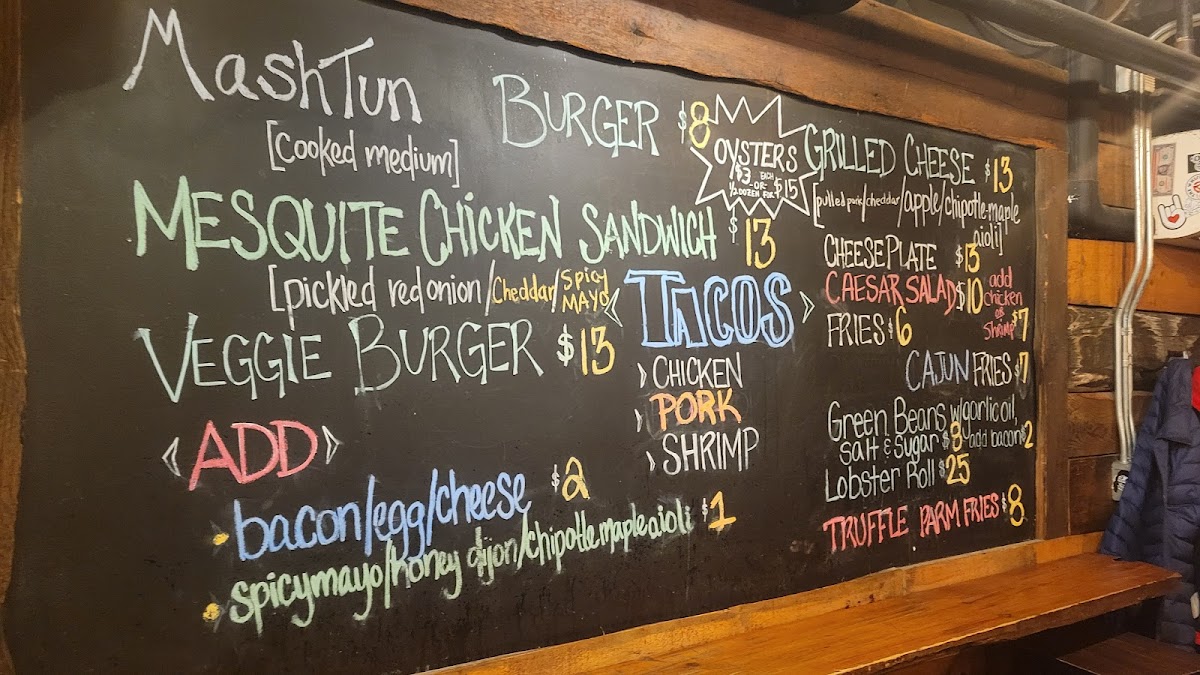 MashTun BURGER $8
[cooked medium]
MESQUITE CHICKEN SANDWICH $13
[pickled red onion/Cheddar/Spicy
MAYO
VEGGIE BURGER $13
<ADD>
bacon/egg/cheese $2
spicymayo/honey dijon/chipotle maple aioli $1
OYSTERS
$3 EACH
-OR-
1/2 DOZEN FOR $15
<TACOS>
CHICKEN
PORK
SHRIMP
GRILLED CHEESE $13
[pulled pork/cheddar/apple/chipotle-maple
aioli]
CHEESE PLATE $13
CAESAR SALAD $10 add
chicken
or
Shrimp $7
FRIES $6
CAJUN FRIES $7
Green Beans w/garlic oil,
salt & sugar $8 add bacon $2
Lobster Roll $25
TRUFFLE PARM FRIES $8